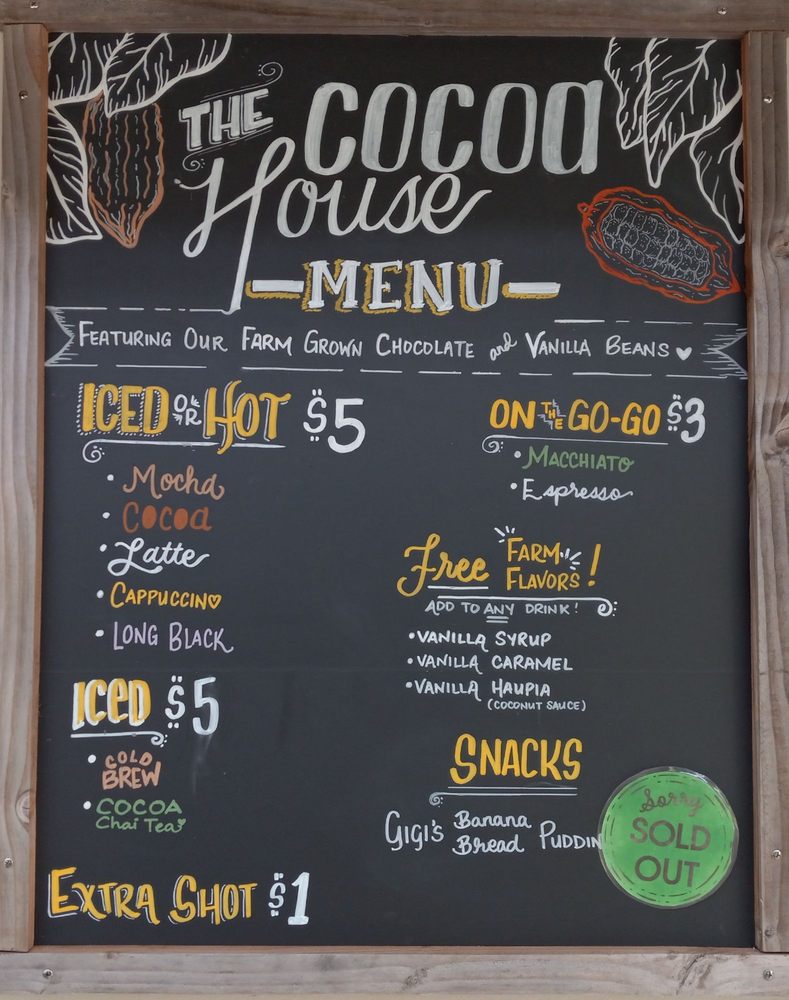 THE COCOA
House
-MENU-
FEATURING OUR FARM GROWN CHOCOLATE and VANILLA BEANS
ICED OR HOT $5
• Mocha
• COCOA
• Latte
• CAPPUCCINO
• LONG BLACK
ICED $5
• COLD
BREW
• COCOA
Chai Tea
EXTRA SHOT $1
ON THE GO-GO $3
• MACCHIATO
• Espresso
Free FARM
FLAVORS!
ADD TO ANY DRINK!
• VANILLA SYRUP
• VANILLA CARAMEL
• VANILLA HAUPIA
(COCONUT SAUCE)
SNACKS
GIGI'S Banana
Bread PUDDIN
Sorry
SOLD
OUT